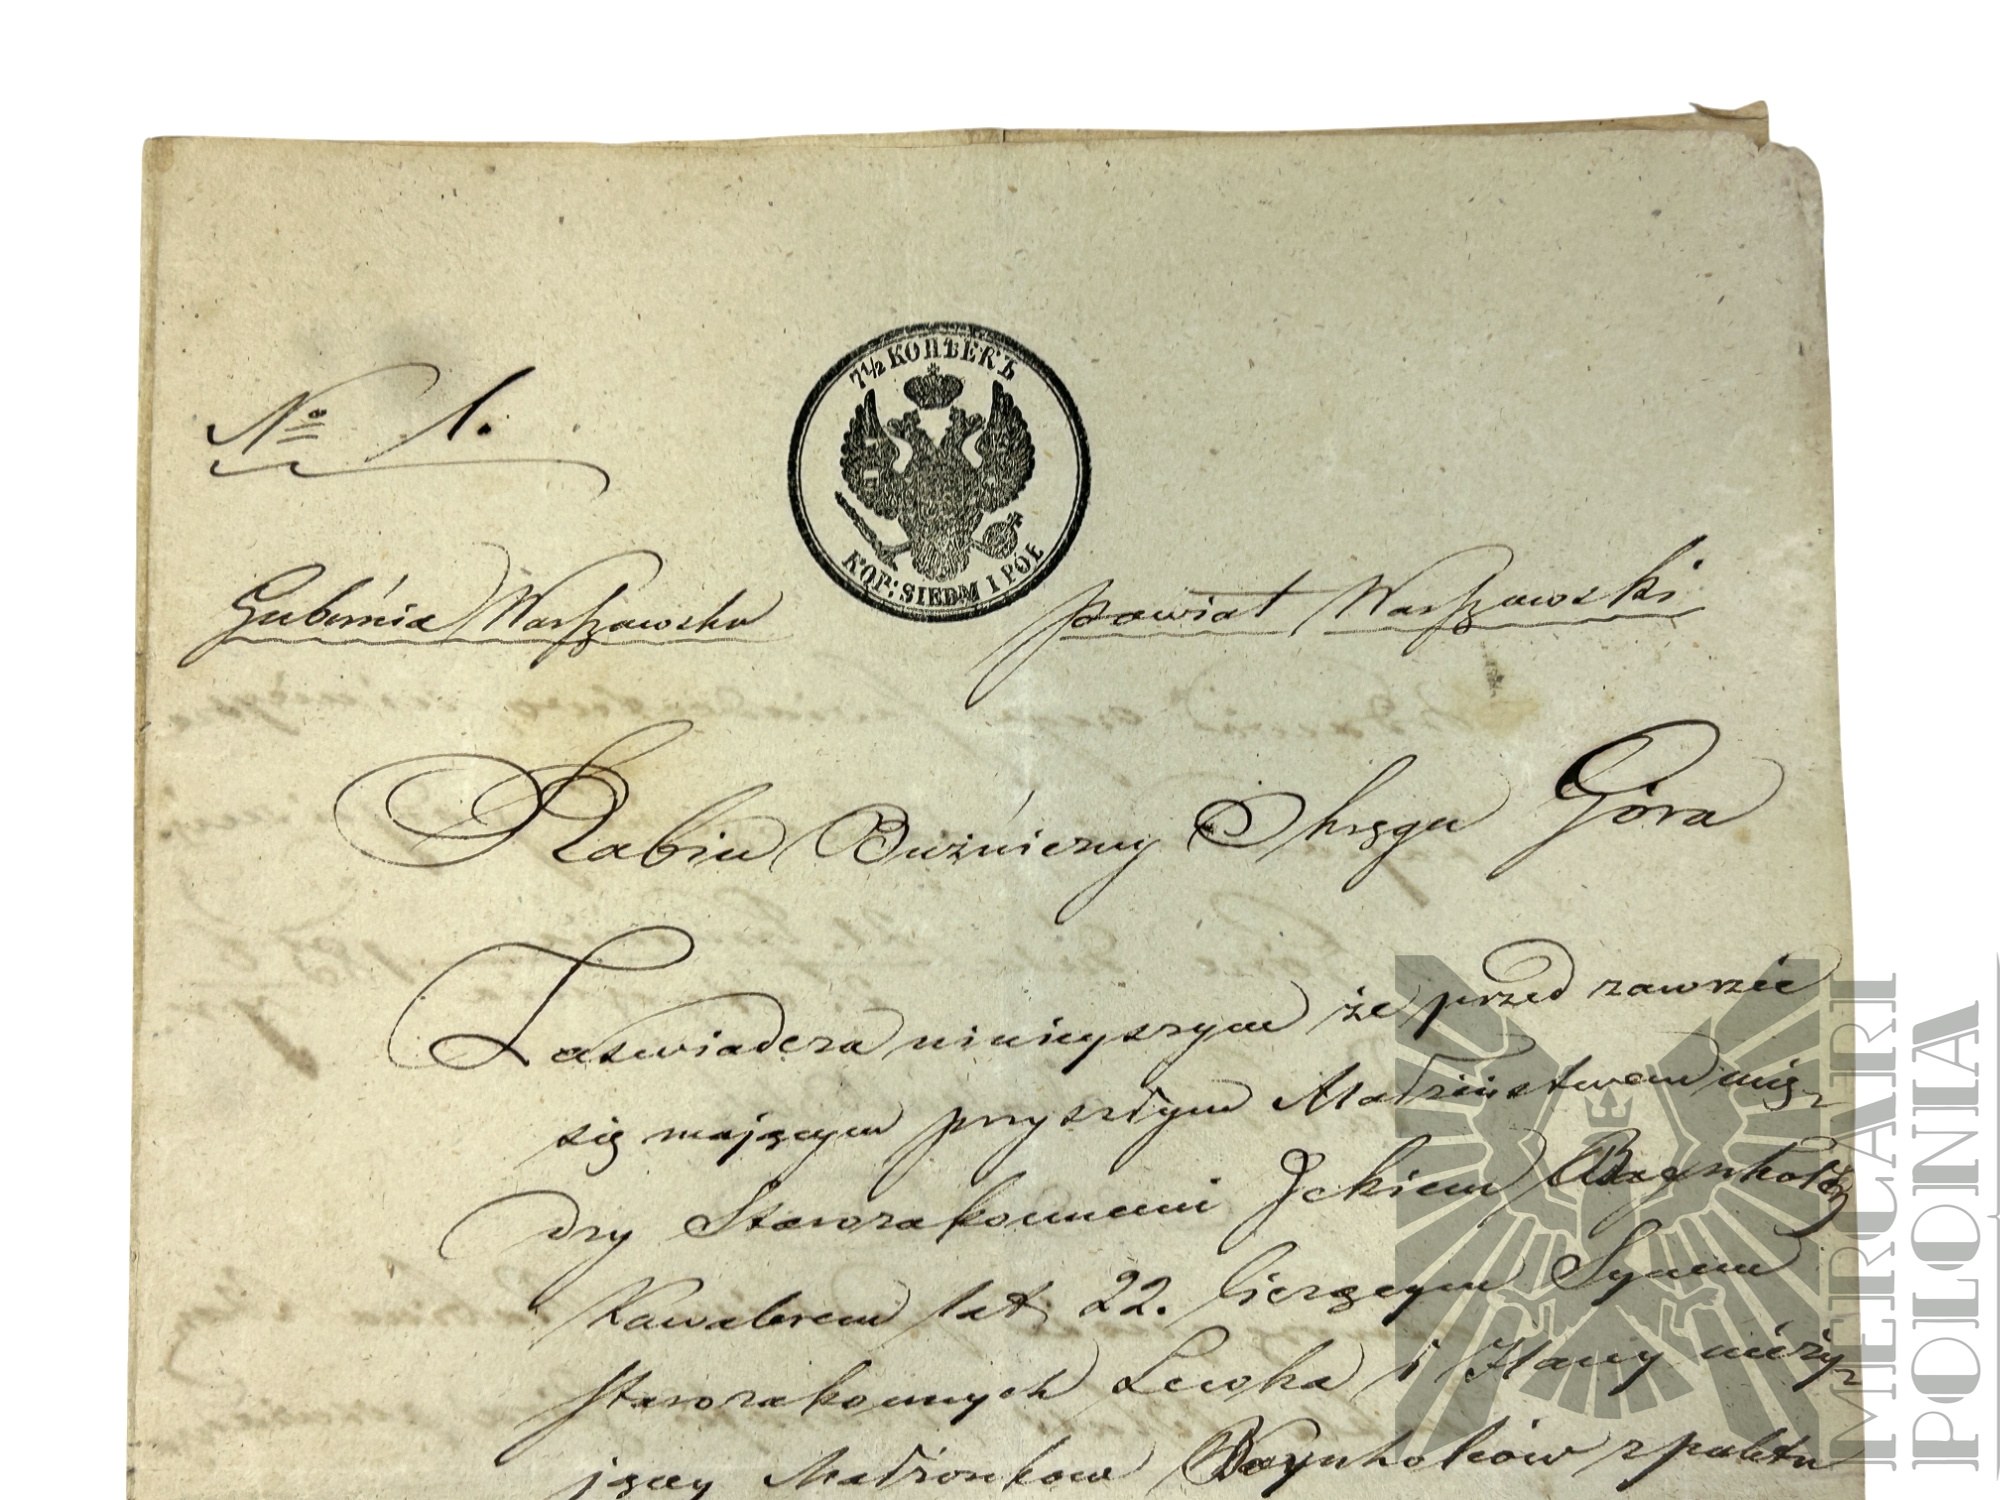 7½ КОПѢЕКЪ
KOP: SIEDM I PÓŁ
No 1.
Gubernia Warszawska
powiat Warszawski
Rabin Bużniczny Okręgu Góra
Zaswiadcza ninieyszym że przed zawrzec
się mającym przyszłym Małżeństwem mię-
dzy Starozakonnemi Ickiem
Kawalerem lat 22. liczącym Synem
starozakonnych Lewka i Hany nieży-
jącey Małżonków
MERCARI
POLONIA